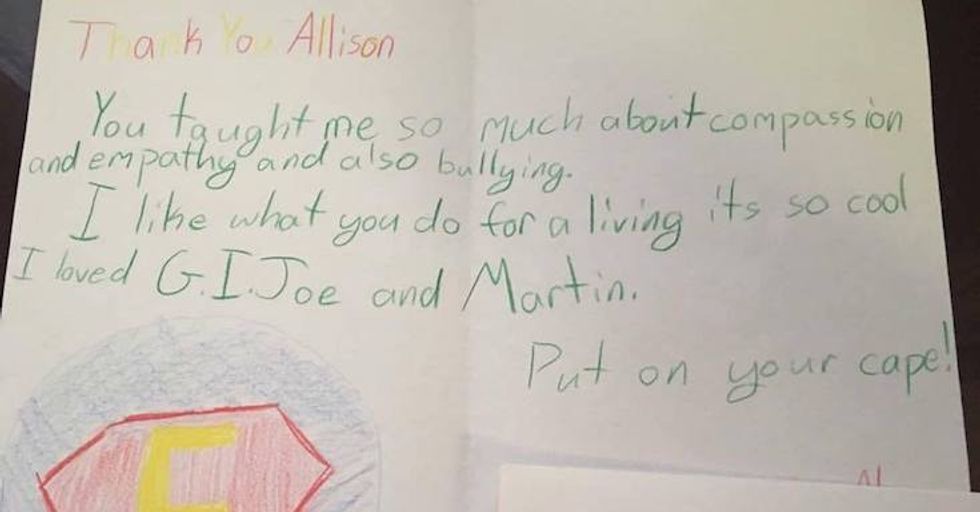 Thank You Allison
You taught me so much about compassion
and empathy and also bullying.
I like what you do for a living its so cool
I loved G.I.Joe and Martin.
Put on your cape!